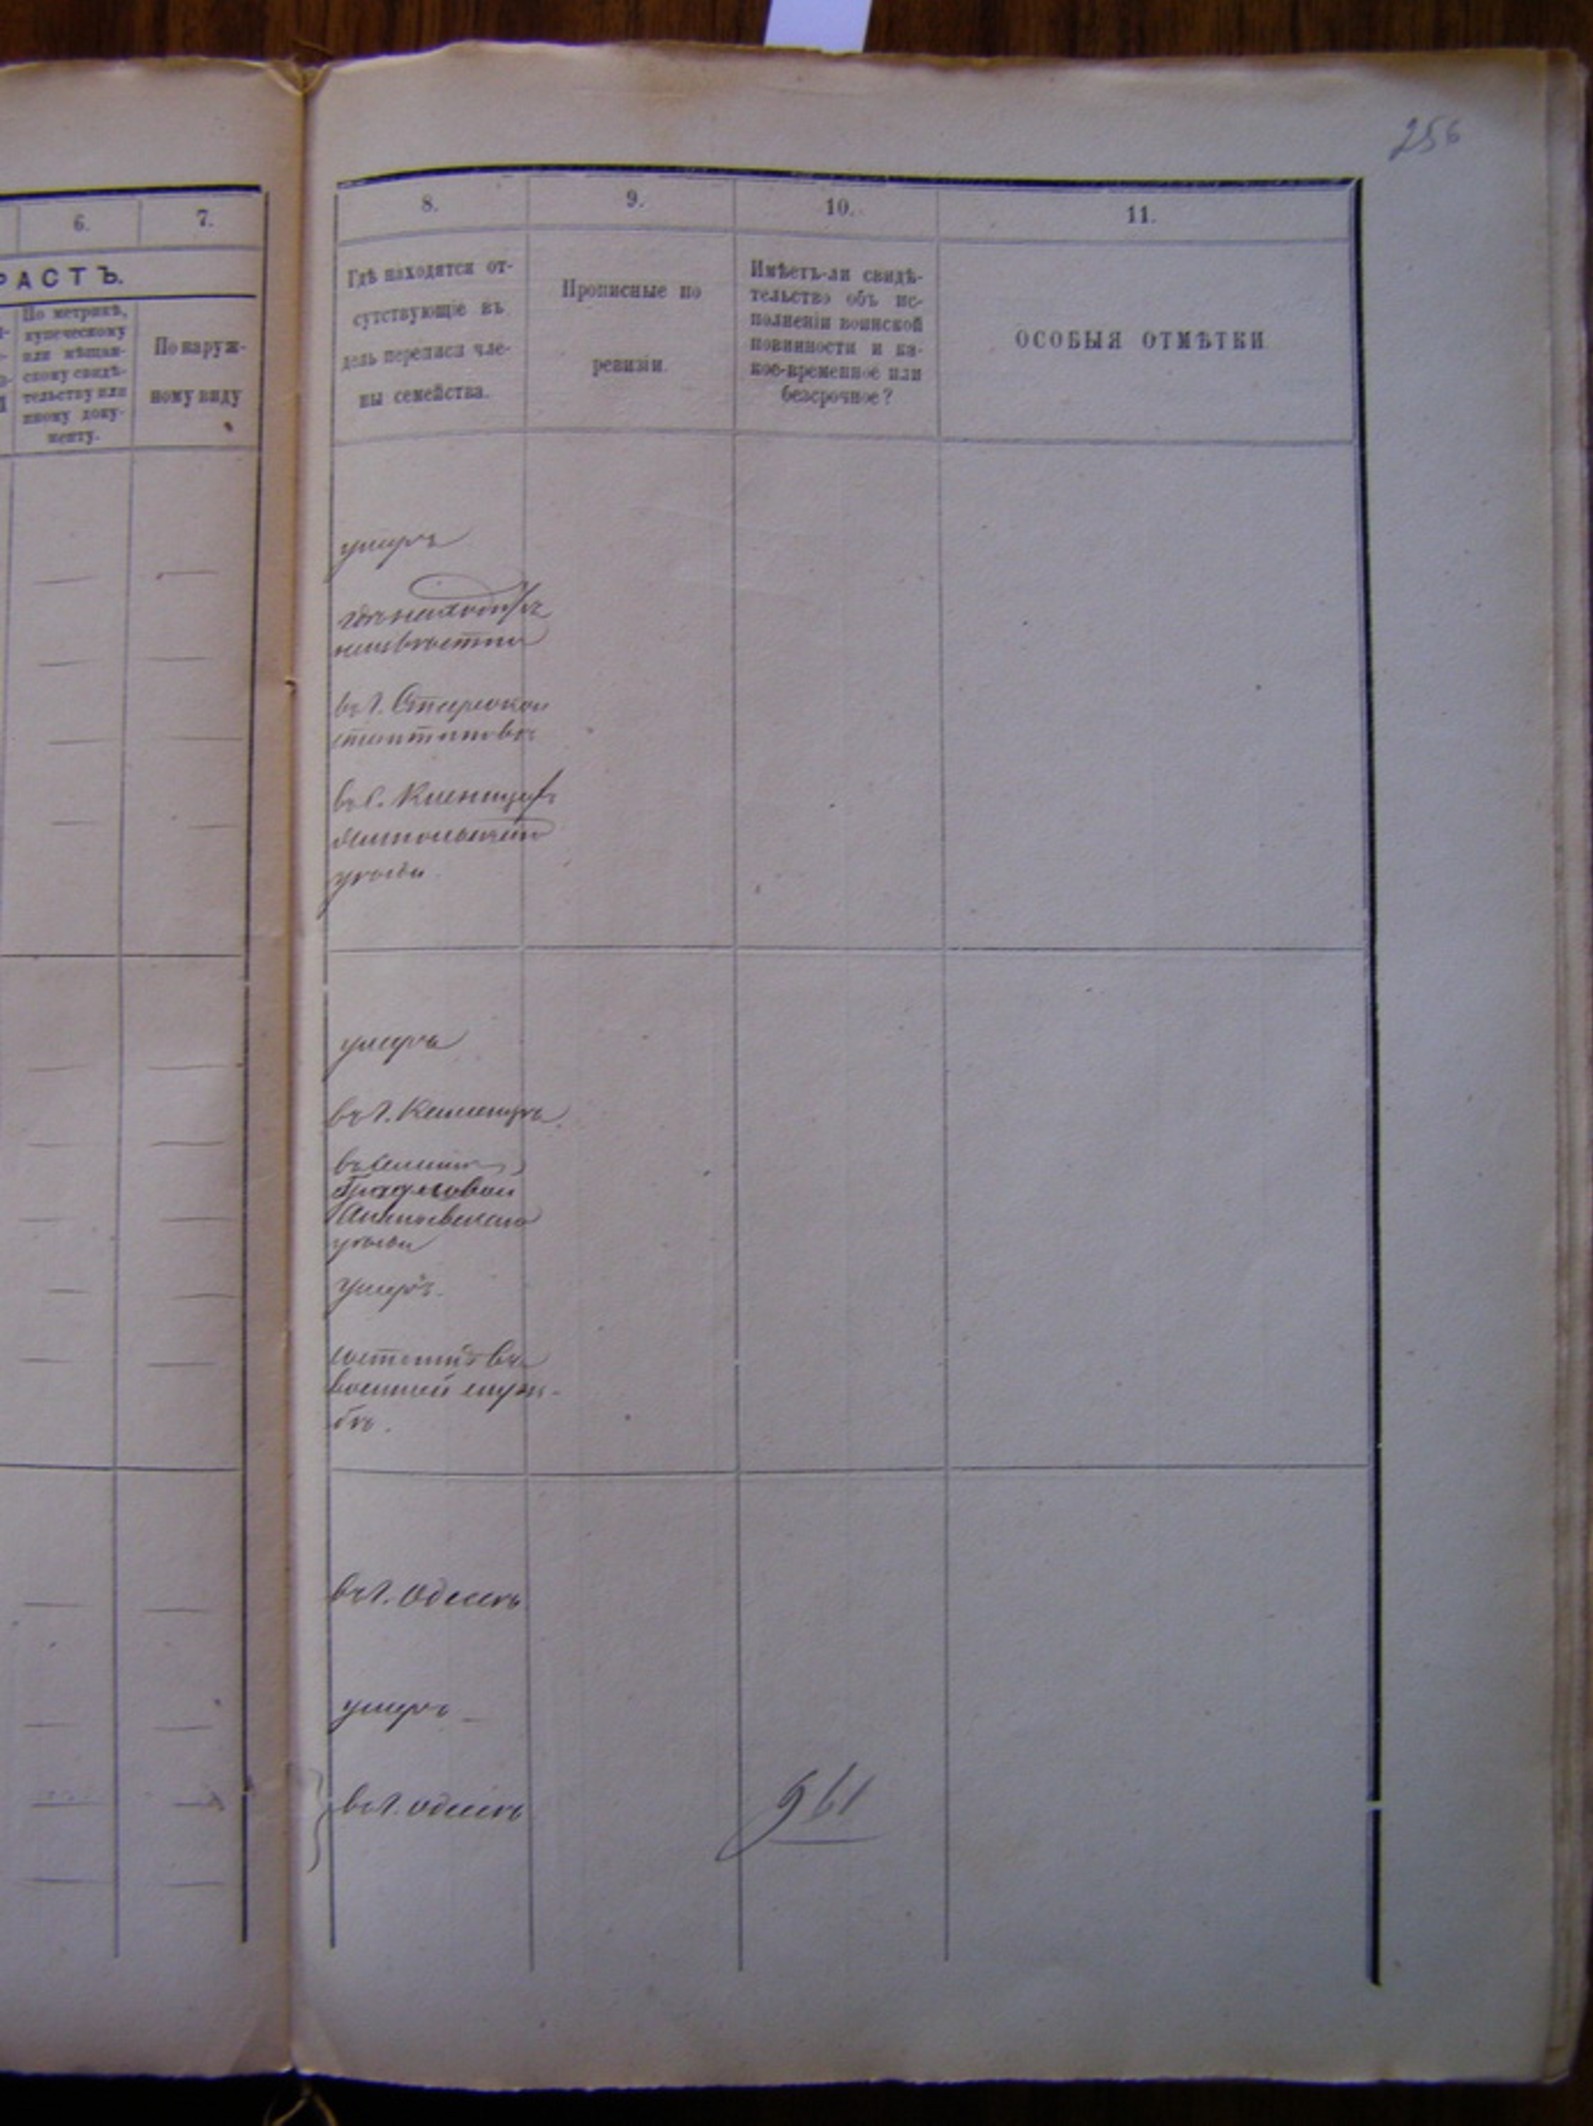 256
6.
7.
РАСТЪ.
По метрикѣ,
купеческому
или мѣщан-
скому свидѣ-
тельству или
иному доку-
менту.
По наруж-
ному виду
8.
9.
10.
11.
Гдѣ находятся от-
сутствующіе въ
день переписи чле-
ны семейства.
Прописные по
ревизіи.
Имѣетъ-ли свидѣ-
тельство объ ис-
полненіи воинской
повинности и ка-
кое-временное или
безсрочное?
ОСОБЫЯ ОТМѢТКИ
умеръ
гдѣ находится
неизвѣстно
въ г. Староконс
тантиновѣ
въ с.
уѣзда.
умеръ
въ г. Каменцѣ
въ
уѣзда
Умеръ.
состоитъ въ
военной служ-
бѣ.
въ г. Одессѣ
умеръ
въ г. Одессѣ
961